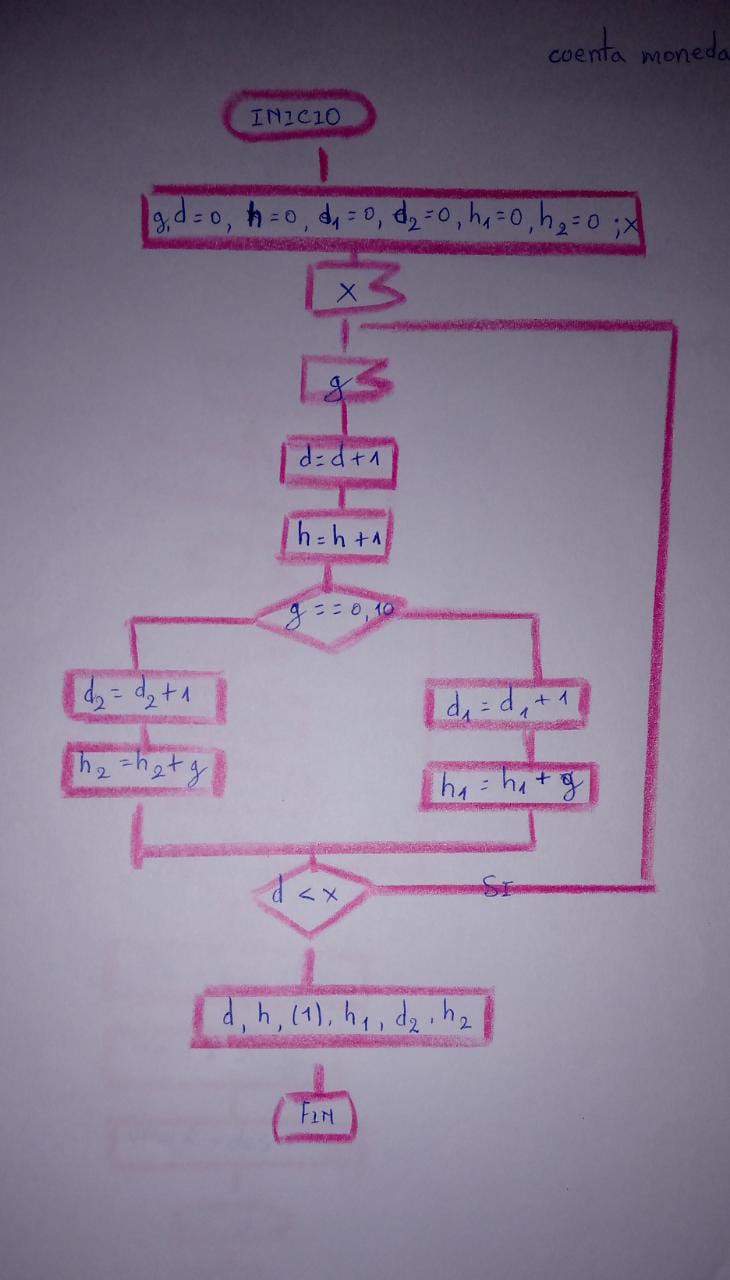 cuenta moneda
INICIO
g, d=0, h=0, d₁=0, d₂=0, h₁=0, h₂=0 ; x
x
g
d=d+1
h=h+1
g==0,10
d₂=d₂+1
d₁=d₁+1
h₂=h₂+g
h₁=h₁+g
d<x
SI
d, h, (1), h₁, d₂, h₂
FIN